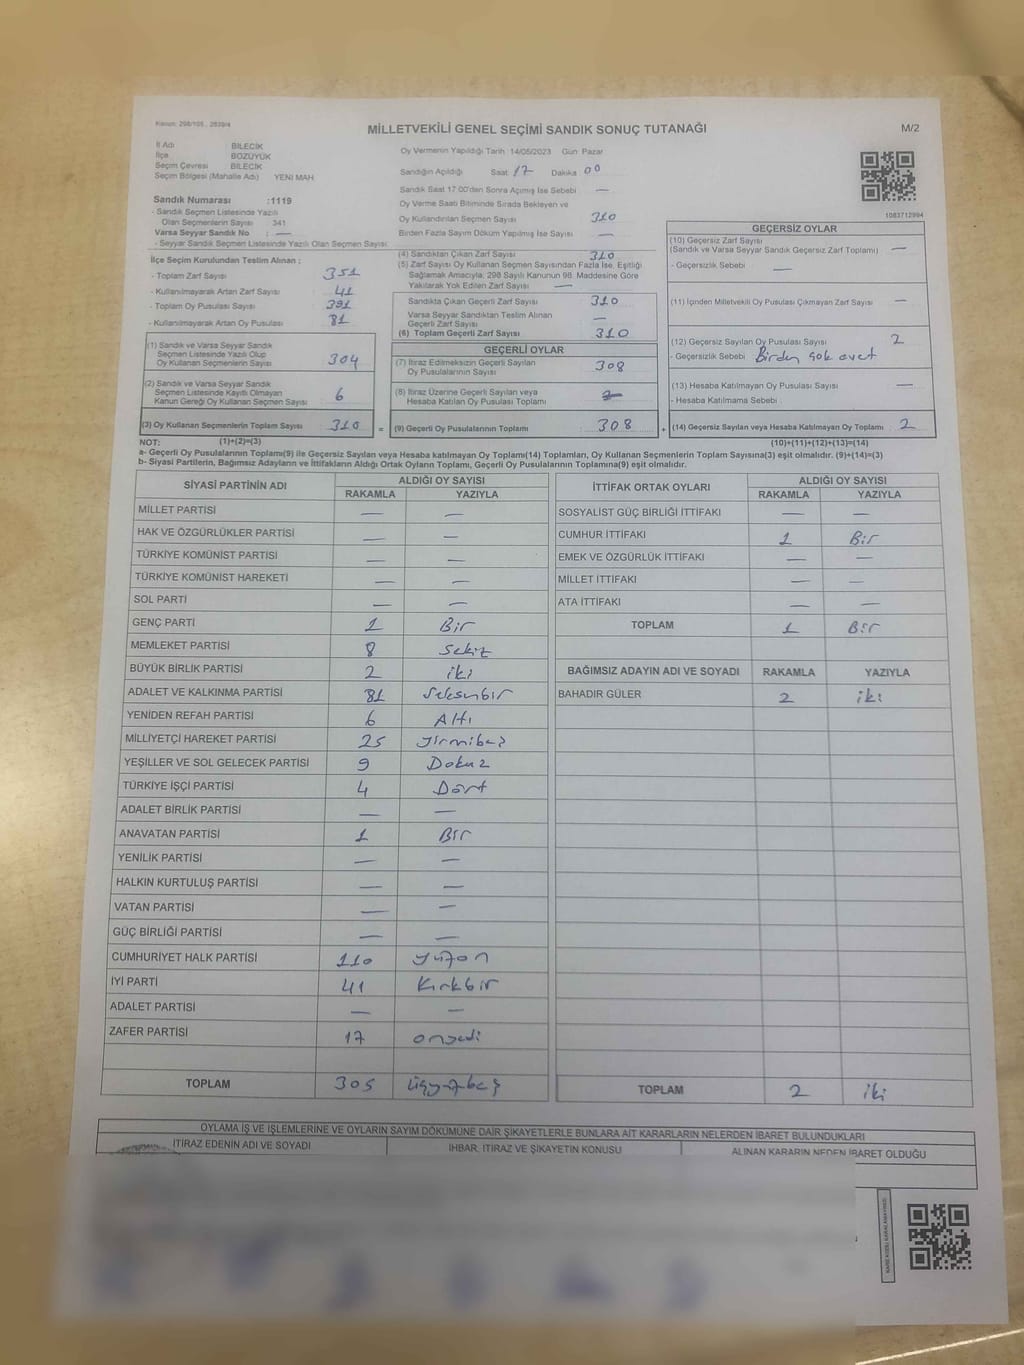 Kanun: 298/105., 2839/4
MİLLETVEKİLİ GENEL SEÇİMİ SANDIK SONUÇ TUTANAĞI
M/2
İl Adı BİLECİK
İlçe BOZÜYÜK
Seçim Çevresi BİLECİK
Seçim Bölgesi (Mahalle Adı) YENİ MAH
Sandık Numarası :1119
- Sandık Seçmen Listesinde Yazılı
Olan Seçmenlerin Sayısı 341
Varsa Seyyar Sandık No : —
- Seyyar Sandık Seçmen Listesinde Yazılı Olan Seçmen Sayısı:
Oy Vermenin Yapıldığı Tarih :14/05/2023 Gün: Pazar
Sandığın Açıldığı Saat 17 Dakika 00
Sandık Saat 17.00'den Sonra Açılmış İse Sebebi —
Oy Verme Saati Bitiminde Sırada Bekleyen ve
Oy Kullandırılan Seçmen Sayısı 310
Birden Fazla Sayım Döküm Yapılmış İse Sayısı —
1083712994
İlçe Seçim Kurulundan Teslim Alınan ;
- Toplam Zarf Sayısı 351
- Kullanılmayarak Artan Zarf Sayısı 41
- Toplam Oy Pusulası Sayısı 391
- Kullanılmayarak Artan Oy Pusulası 81
(1) Sandık ve Varsa Seyyar Sandık
Seçmen Listesinde Yazılı Olup
Oy Kullanan Seçmenlerin Sayısı 304
(2) Sandık ve Varsa Seyyar Sandık
Seçmen Listesinde Kayıtlı Olmayan
Kanun Gereği Oy Kullanan Seçmen Sayısı 6
(3) Oy Kullanan Seçmenlerin Toplam Sayısı 310 =
(4) Sandıktan Çıkan Zarf Sayısı 310
(5) Zarf Sayısı Oy Kullanan Seçmen Sayısından Fazla İse, Eşitliği
Sağlamak Amacıyla, 298 Sayılı Kanunun 98. Maddesine Göre
Yakılarak Yok Edilen Zarf Sayısı —
Sandıkta Çıkan Geçerli Zarf Sayısı 310
Varsa Seyyar Sandıktan Teslim Alınan
Geçerli Zarf Sayısı —
(6) Toplam Geçerli Zarf Sayısı 310
GEÇERLİ OYLAR
(7) İtiraz Edilmeksizin Geçerli Sayılan
Oy Pusulalarının Sayısı 308
(8) İtiraz Üzerine Geçerli Sayılan veya
Hesaba Katılan Oy Pusulası Toplamı
(9) Geçerli Oy Pusulalarının Toplamı 308 +
GEÇERSİZ OYLAR
(10) Geçersiz Zarf Sayısı
(Sandık ve Varsa Seyyar Sandık Geçersiz Zarf Toplamı) —
- Geçersizlik Sebebi —
(11) İçinden Milletvekili Oy Pusulası Çıkmayan Zarf Sayısı —
(12) Geçersiz Sayılan Oy Pusulası Sayısı 2
- Geçersizlik Sebebi Birden çok evet
(13) Hesaba Katılmayan Oy Pusulası Sayısı —
- Hesaba Katılmama Sebebi
(14) Geçersiz Sayılan veya Hesaba Katılmayan Oy Toplamı 2
NOT: (1)+(2)=(3) (10)+(11)+(12)+(13)=(14)
a- Geçerli Oy Pusulalarının Toplamı(9) ile Geçersiz Sayılan veya Hesaba Katılmayan Oy Toplamı(14) Toplamları, Oy Kullanan Seçmenlerin Toplam Sayısına(3) eşit olmalıdır. (9)+(14)=(3)
b- Siyasi Partilerin, Bağımsız Adayların ve İttifakların Aldığı Ortak Oyların Toplamı, Geçerli Oy Pusulalarının Toplamına(9) eşit olmalıdır.
SİYASİ PARTİNİN ADI ALDIĞI OY SAYISI
RAKAMLA YAZIYLA
MİLLET PARTİSİ — —
HAK VE ÖZGÜRLÜKLER PARTİSİ — —
TÜRKİYE KOMÜNİST PARTİSİ — —
TÜRKİYE KOMÜNİST HAREKETİ — —
SOL PARTİ — —
GENÇ PARTİ 1 Bir
MEMLEKET PARTİSİ 8 Sekiz
BÜYÜK BİRLİK PARTİSİ 2 iki
ADALET VE KALKINMA PARTİSİ 81 Seksenbir
YENİDEN REFAH PARTİSİ 6 Altı
MİLLİYETÇİ HAREKET PARTİSİ 25 yirmibeş
YEŞİLLER VE SOL GELECEK PARTİSİ 9 Dokuz
TÜRKİYE İŞÇİ PARTİSİ 4 Dört
ADALET BİRLİK PARTİSİ — —
ANAVATAN PARTİSİ 1 Bir
YENİLİK PARTİSİ — —
HALKIN KURTULUŞ PARTİSİ — —
VATAN PARTİSİ — —
GÜÇ BİRLİĞİ PARTİSİ — —
CUMHURİYET HALK PARTİSİ 110 yüzon
İYİ PARTİ 41 Kırkbir
ADALET PARTİSİ — —
ZAFER PARTİSİ 17 onyedi
TOPLAM 305 üçyüzbeş
İTTİFAK ORTAK OYLARI ALDIĞI OY SAYISI
RAKAMLA YAZIYLA
SOSYALİST GÜÇ BİRLİĞİ İTTİFAKI — —
CUMHUR İTTİFAKI 1 Bir
EMEK VE ÖZGÜRLÜK İTTİFAKI — —
MİLLET İTTİFAKI — —
ATA İTTİFAKI — —
TOPLAM 1 Bir
BAĞIMSIZ ADAYIN ADI VE SOYADI RAKAMLA YAZIYLA
BAHADIR GÜLER 2 iki
TOPLAM 2 iki
OYLAMA İŞ VE İŞLEMLERİNE VE OYLARIN SAYIM DÖKÜMÜNE DAİR ŞİKAYETLERLE BUNLARA AİT KARARLARIN NELERDEN İBARET BULUNDUKLARI
İTİRAZ EDENİN ADI VE SOYADI
İHBAR, İTİRAZ VE ŞİKAYETİN KONUSU
ALINAN KARARIN NEDEN İBARET OLDUĞU